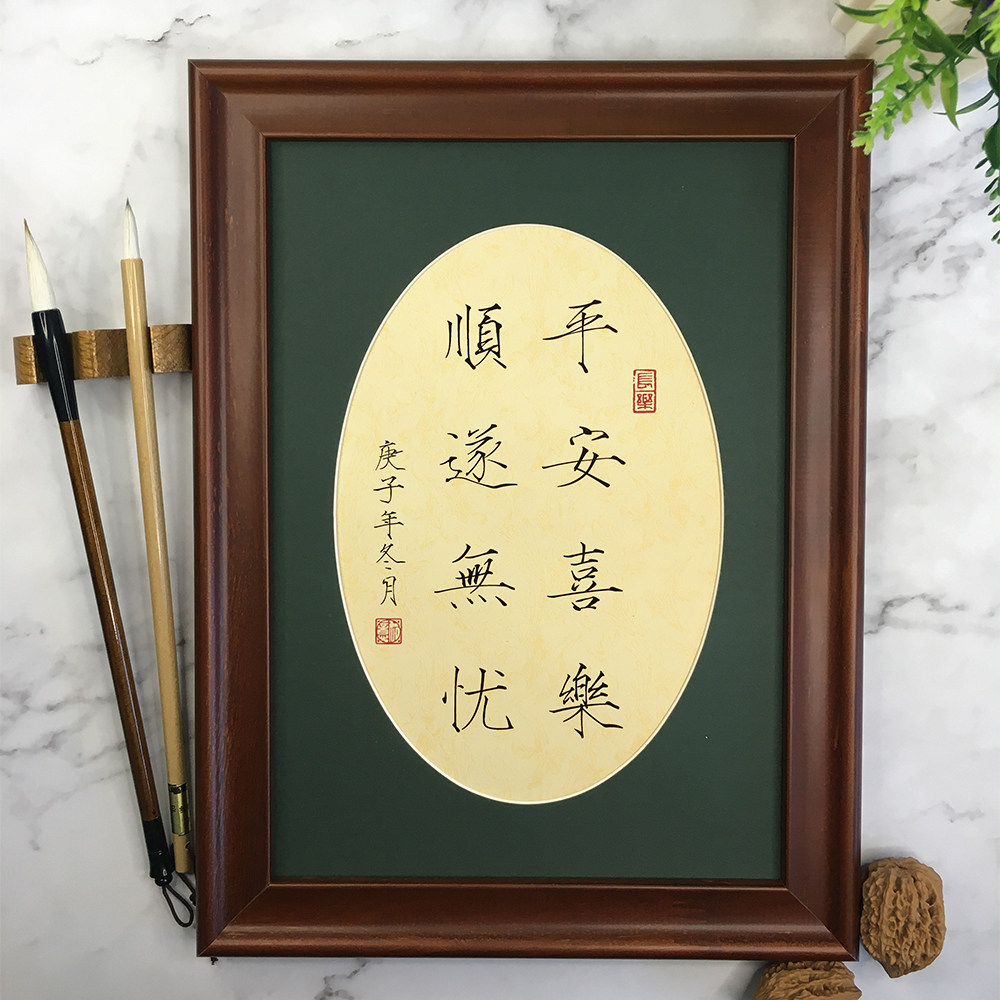 平安喜樂
順遂無忧
庚子年冬月
長樂